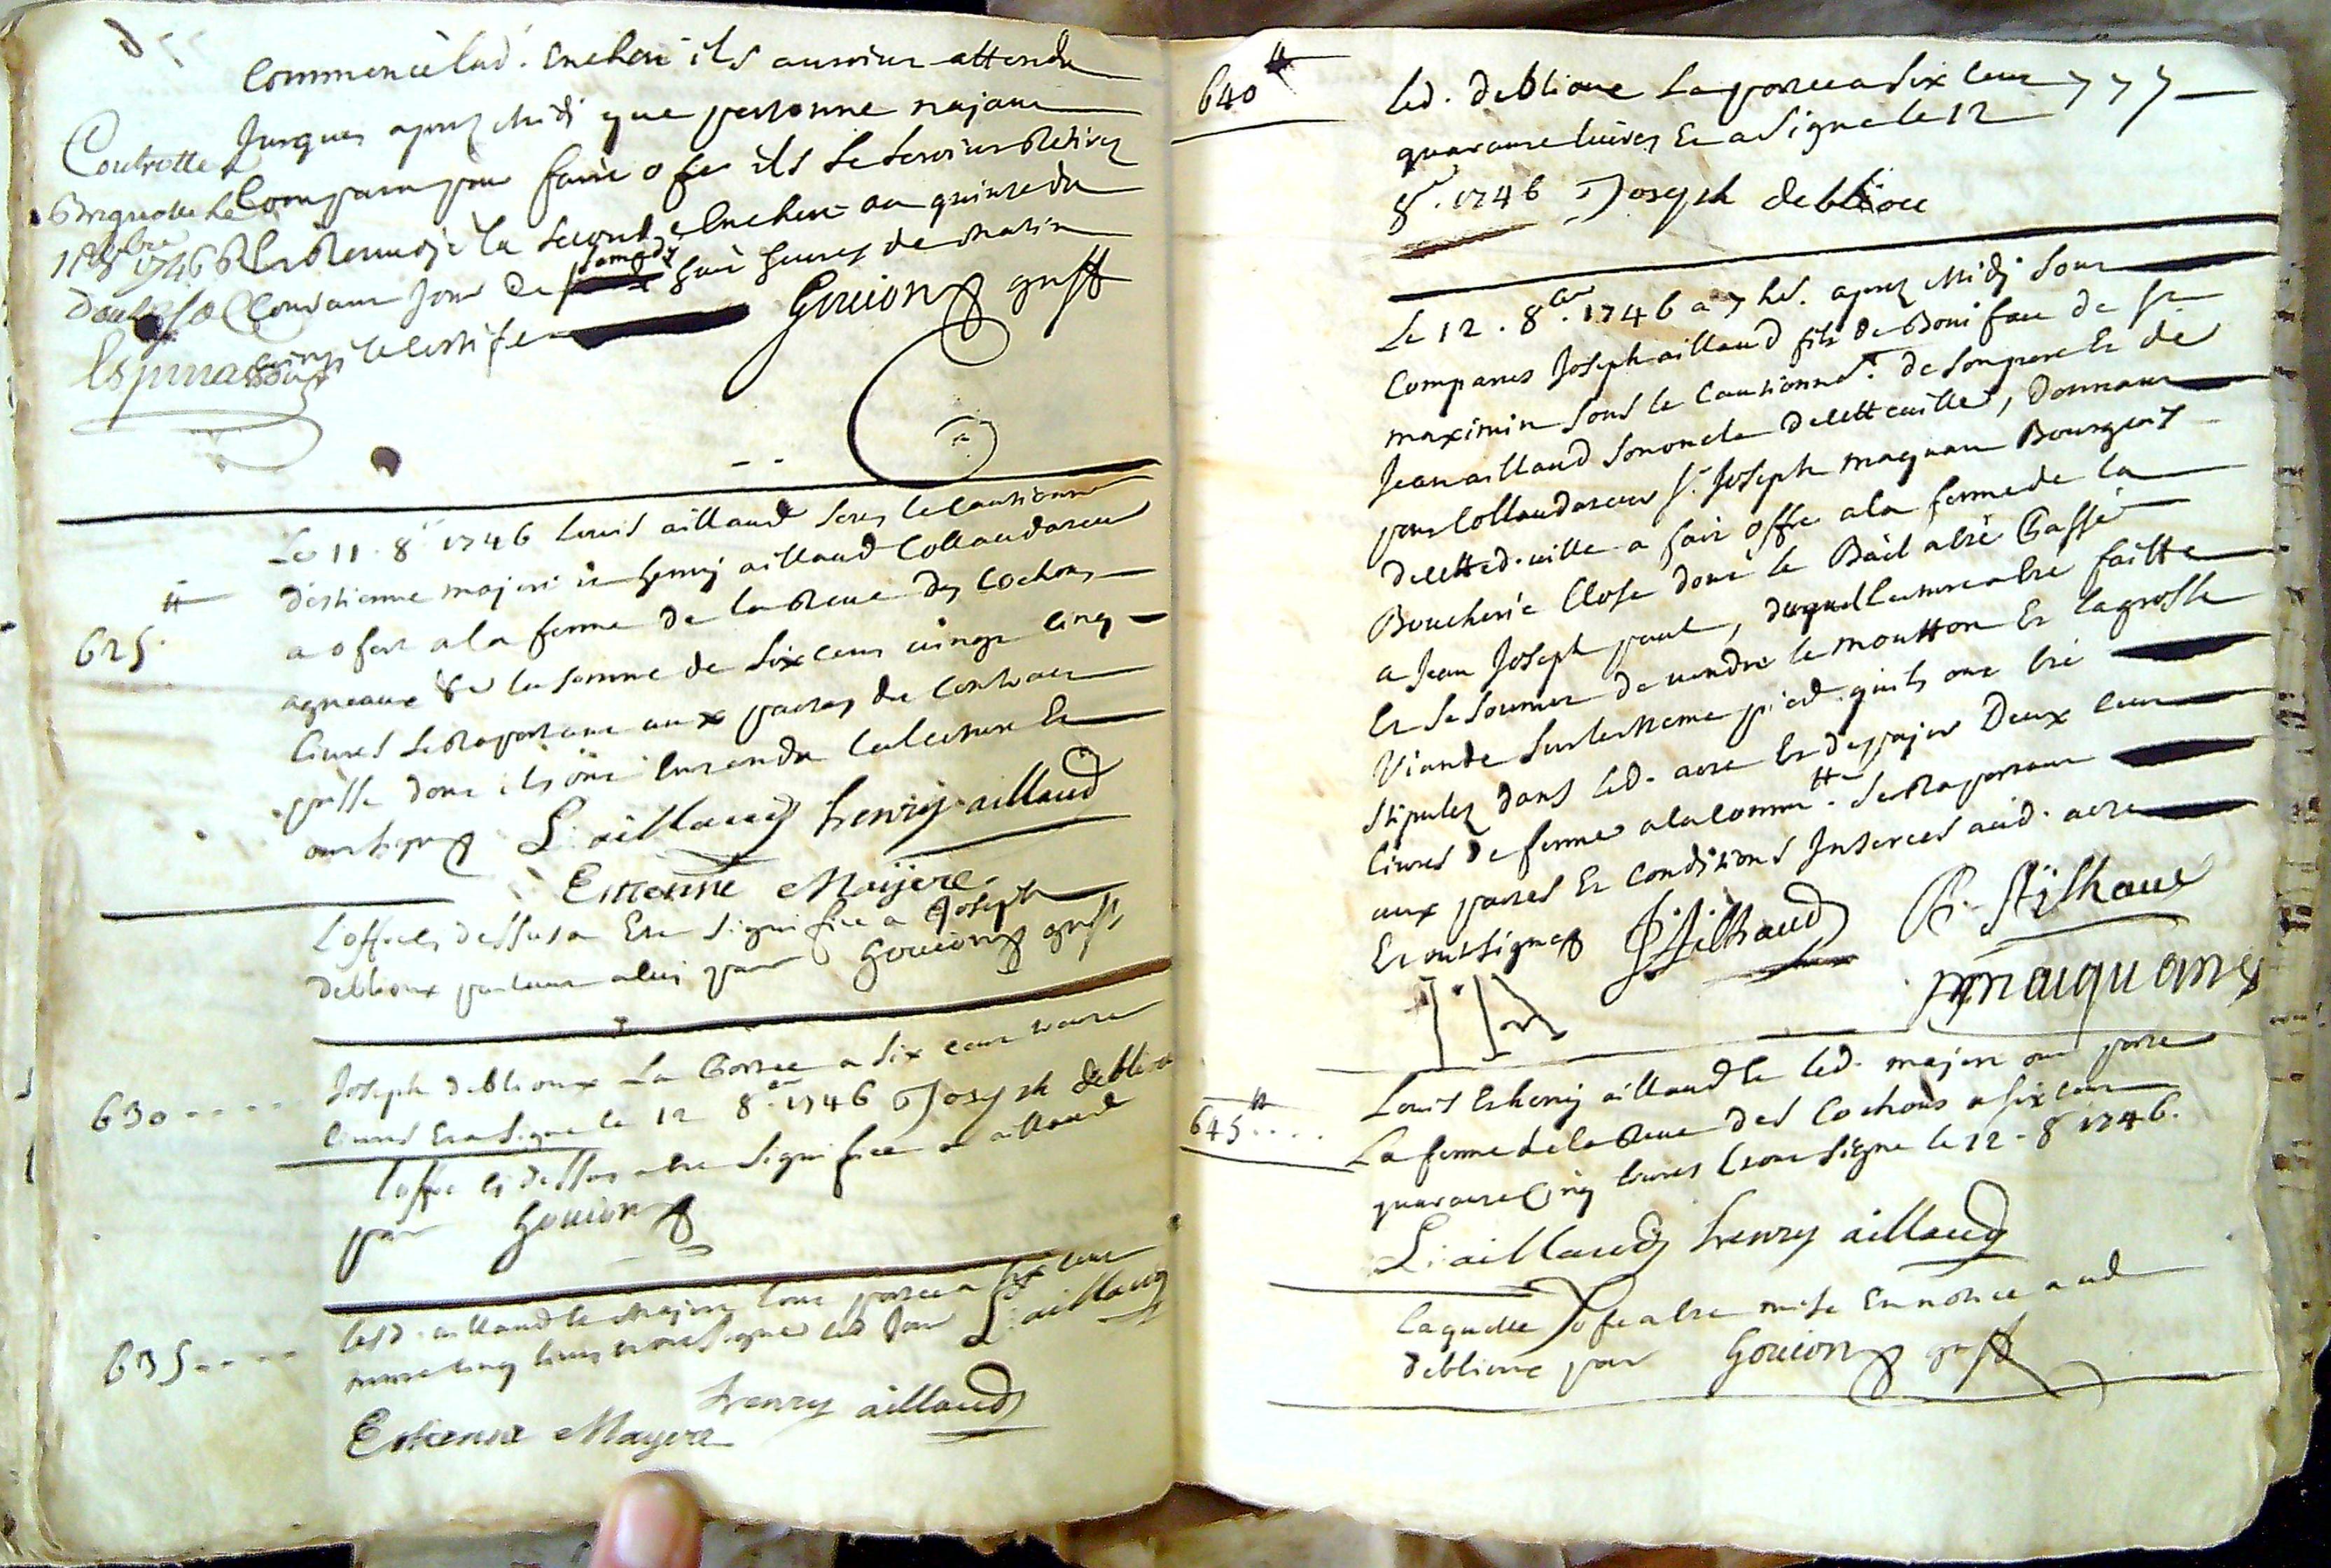 Commencè lad. Enchere ils auroient attendu
Jusques apres Midi que personne najant
Comparu pour faire ofre ils se seroient Retirez
Et Renvojé la seconde Enchere au quinze du
Courant Jour de samedy huit heures de matin
ainsi le certifie Gouion greff
Controllé a
Brignolle le
11 8bre 1746
Espinassy
Le 11. 8.r 1746 Louis aillaud sous le cautionn
d'estienne majere et henrij aillaud Collaudateur
625.
a ofert a la ferme de la Reve des Cochons
agneaux &c la somme de six cens vingt cinq
livres se Raportant aux pactes du Contract
passé dont ils ont Entendu la lecture Et
ont signez L: aillaud henrij aillaud
Estienne Maijere.
Loffre cy dessus a Eté signifiée a Joseph
deblioux parlant a luij par Gouion greff
630
Joseph deblioux La Portée a six cens trente
livres Et a signé le 12 8.re 1746 Joseph debliou
l'offre cy dessus a été signifiée a aillaud
par Gouion
635
lesd. aillaud et Majere lont portée a six cens
trente cinq livres et ont signé led Jour L: aillaud
henry aillaud
Estienne Mayere
640
led. deblioux La portée a six cens
quarante livres Et a signé le 12
8.r 1746 Joseph debliou
Le 12. 8.bre 1746 a 7 hs. apres Midi sont
Comparus Joseph aillaud fils de Boniface de st
maximin sous le Cautionnet. de son pere Et de
Jean aillaud son oncle de cette ville, Donnant
pour Collaudateur sr. Joseph maquan Bourgeois
de cette d. ville a fait offre a la ferme de la
Boucherie Close dont le Bail a été Passé
a Jean Joseph paul, duquel lecture a été faitte
Et se soumet de vendre le moutton Et la grosse
Viande sur le meme pied quils ont été
stipulez dans led. acte Et de pajer Deux cens
livres de ferme a la commté. se Raportant
aux pactes Et Conditions Inserées aud. acte
Et ont signez J Ailhaud B. Ailhaud
J maquan
645
Louis Et henrij aillaud Et led. majere ont porté
La ferme de la Reve des Cochons a six cens
quarante Cinq livres Et ont signé le 12. 8 1746.
L: aillaud henry aillaud
laquelle ofre a été mise En notice aud
debliou par Gouion greff